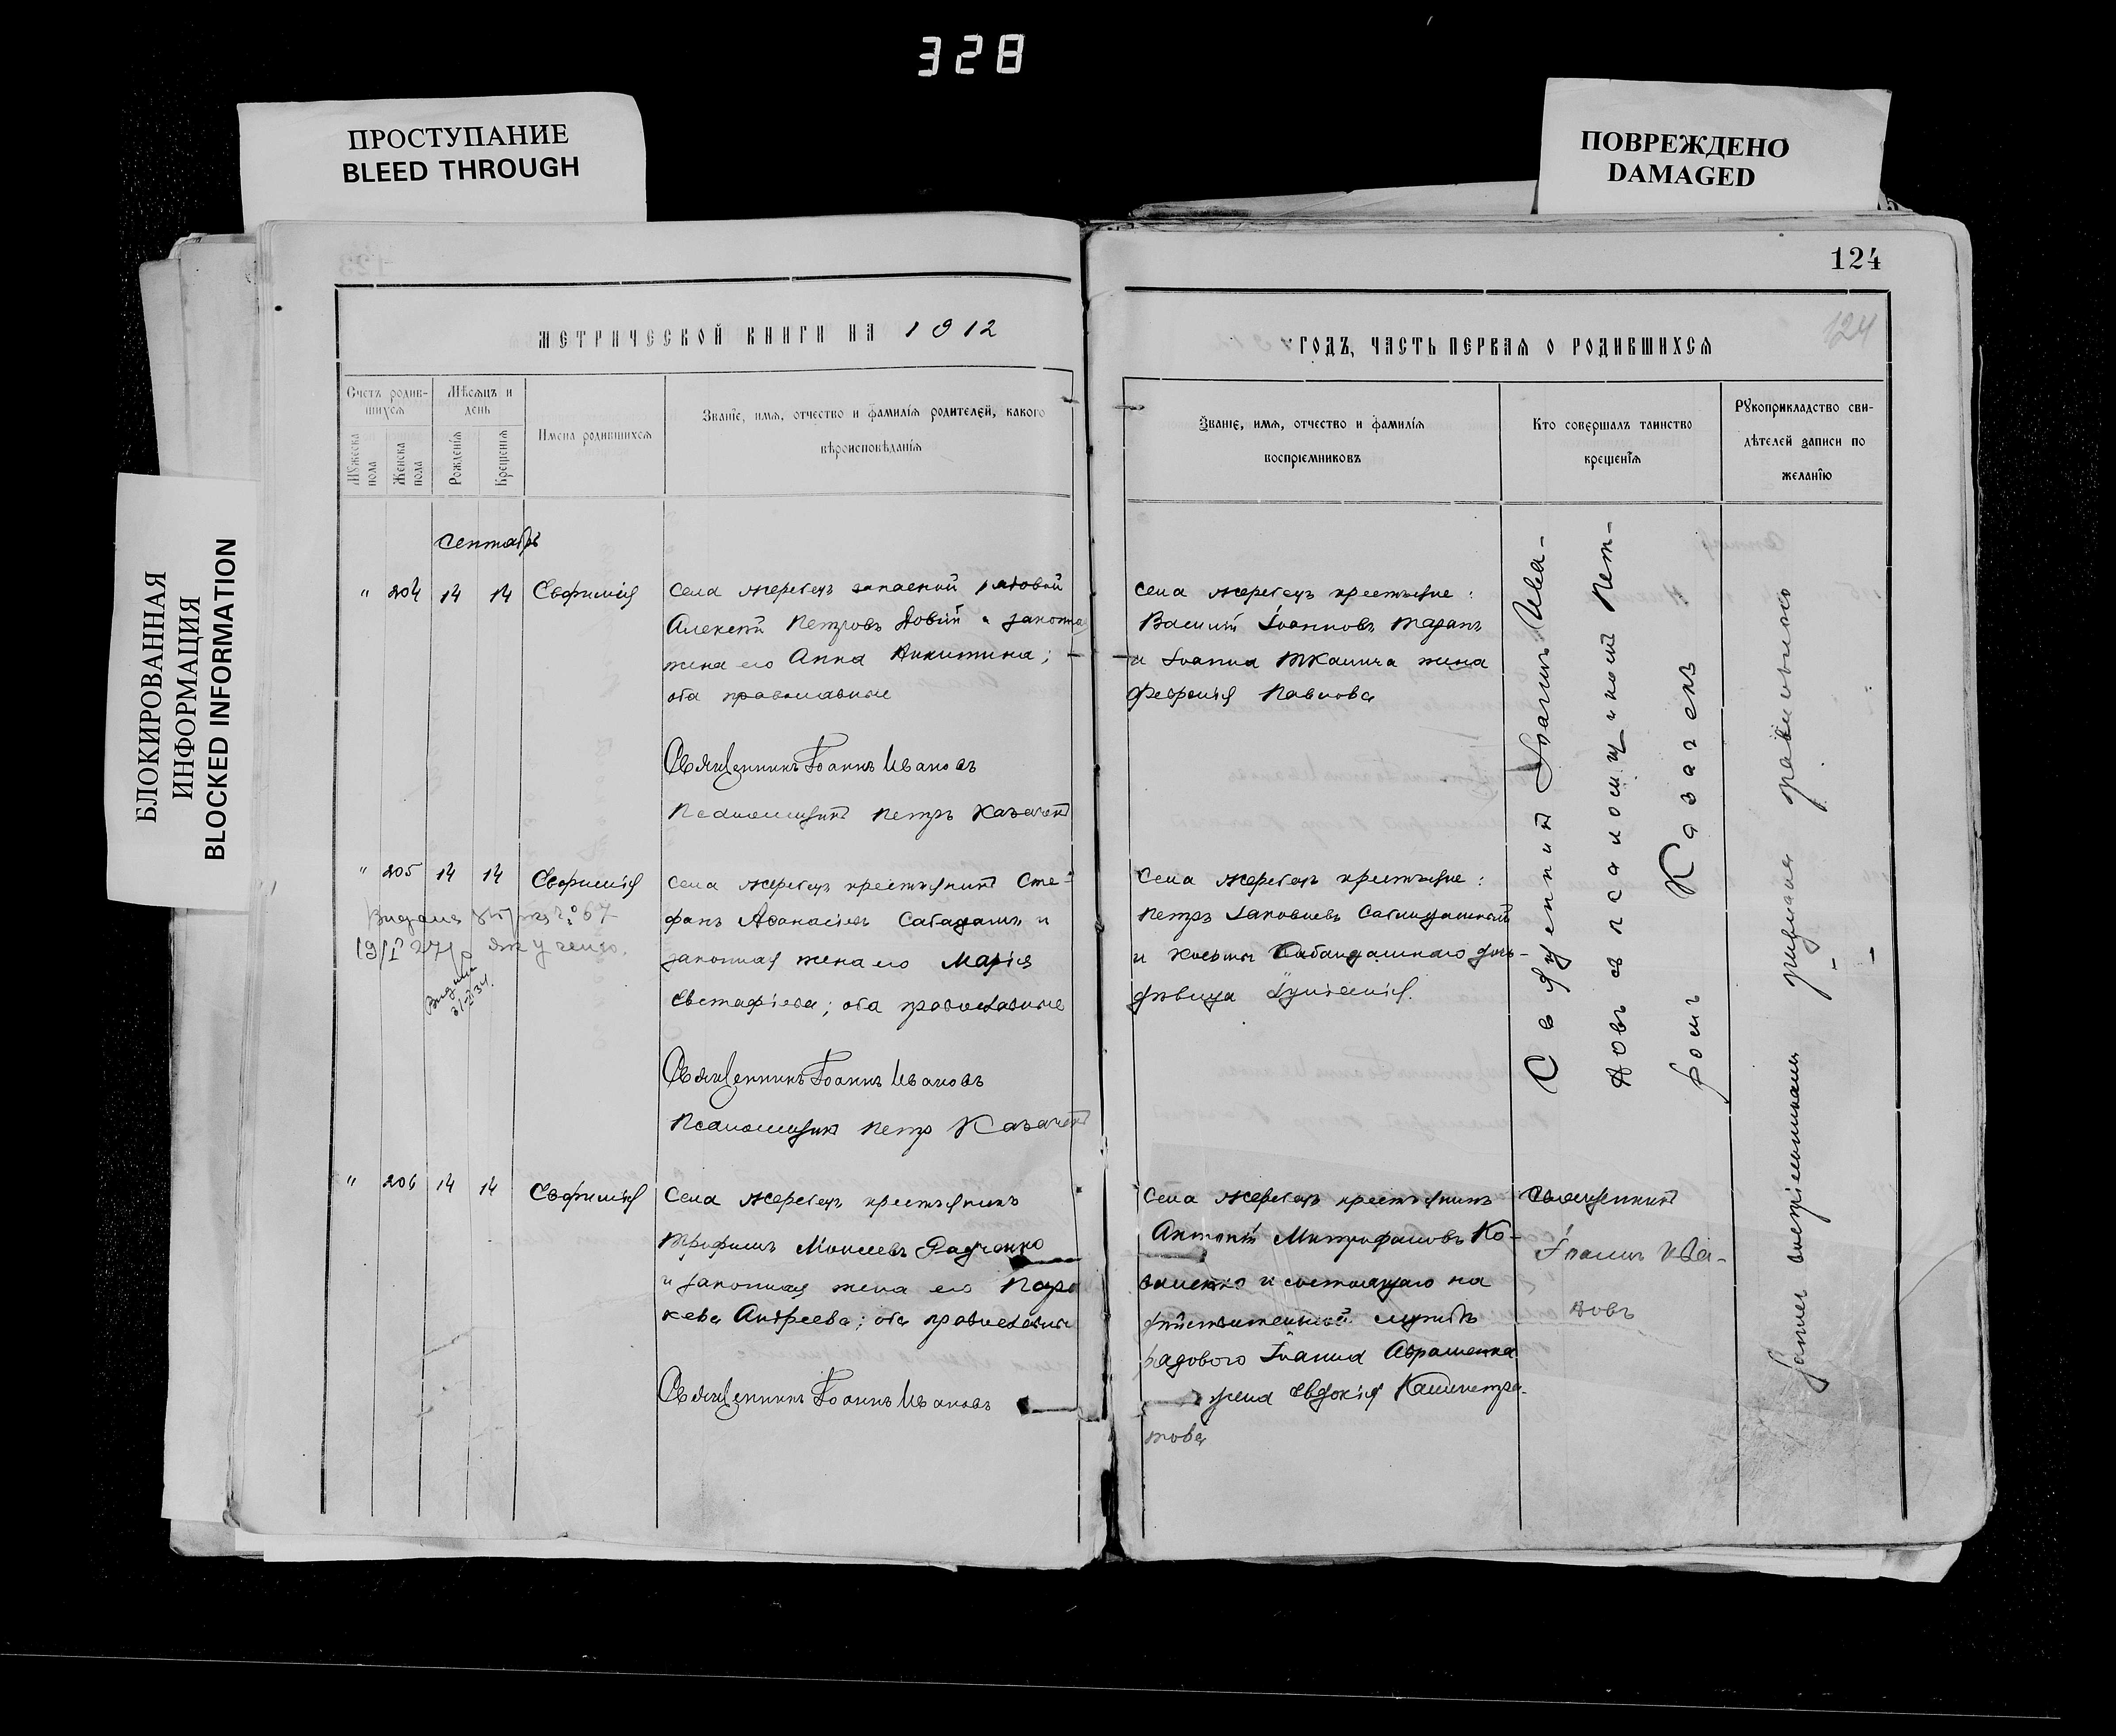 328
ПРОСТУПАНИЕ
BLEED THROUGH
ПОВРЕЖДЕНО
DAMAGED
БЛОКИРОВАННАЯ
ИНФОРМАЦИЯ
BLOCKED INFORMATION
124
124
МЕТРИЧЕСКОЙ КНИГИ НА 1912
ГОДЪ, ЧАСТЬ ПЕРВАЯ О РОДИВШИХСЯ
Счетъ родив-
шихся
Мѣсяцъ и
день
Мужеска
пола
Женска
пола
Рожденія
Крещенія
Имена родившихся
Званіе, имя, отчество и фамилія родителей, какого
вѣроисповѣданія
Званіе, имя, отчество и фамилія
воспріемниковъ
Кто совершалъ таинство
крещенія
Рукоприкладство сви-
дѣтелей записи по
желанію
Сентябрь
" 204 14 14 Евфимія
Села Жеребецъ запасной рядовой
Алексѣй Петровъ Довгій и законна
жена его Анна Никитина;
оба православные
Священникъ Іоаннъ Ивановъ
Псаломщикъ Петръ Казачекъ
Села Жеребецъ крестьяне:
Василій Іоанновъ Таранъ
и Іоанна Ткалича жена
Феѳронія Павлова
" 205 14 14 Евфимія
Видана 67
19/I 27 р.
Видана
Села Жеребецъ крестьянинъ Сте-
фанъ Аѳанасіевъ Сабадашъ и
законная жена его Марія
Евстафіева; оба православные
Священникъ Іоаннъ Ивановъ
Псаломщикъ Петръ Казачекъ
Села Жеребецъ крестьяне:
Петръ Іаковлевъ
и дочь-
дѣвица
Священникъ Іоаннъ Ива-
новъ съ псаломщикомъ Пет-
ромъ Казачекъ
" 206 14 14 Евфимія
Села Жеребецъ крестьянинъ
Трофимъ Моисеевъ Радченко
и законная жена его Пара
кева Андреева; оба православные
Священникъ Іоаннъ Ивановъ
Села Жеребецъ крестьянинъ
Антоній Митрофановъ Ко-
валенко и состоящаго на
дѣйствительной службѣ
рядового Іоанна Авраменка
жена Евдокія Калистра-
това
Священникъ
Іоаннъ Ива-
новъ